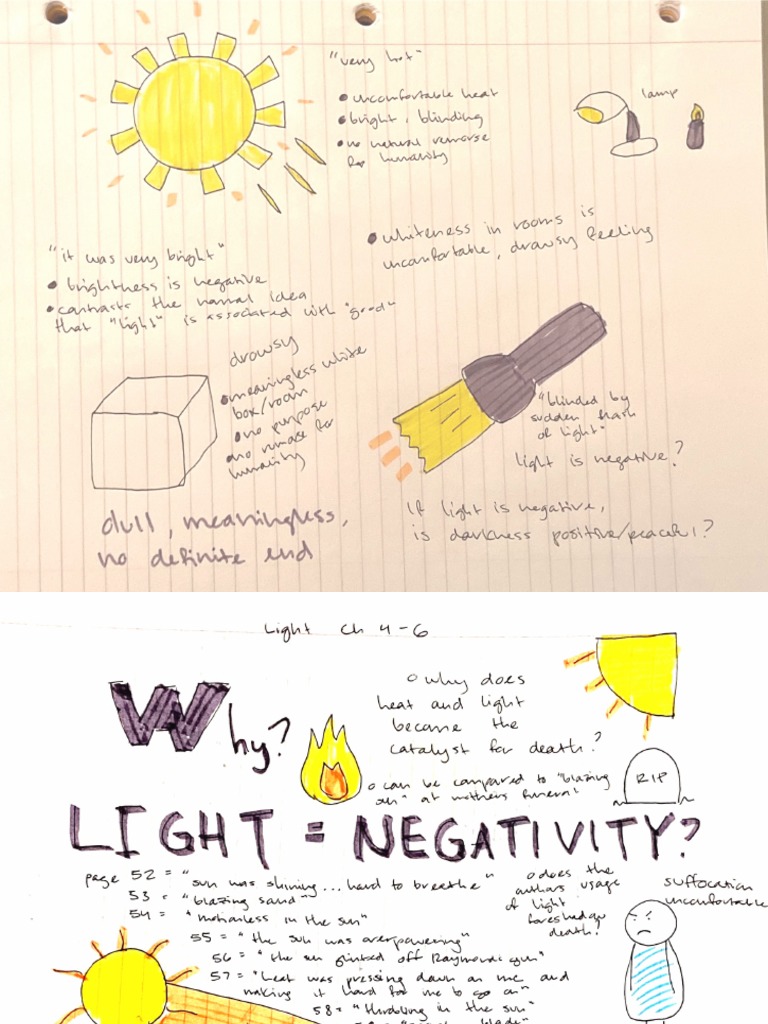 "very hot"
• uncomfortable heat
• bright, blinding
• no natural remorse
for humanity
lamp
• whiteness in rooms is
uncomfortable, drowsy feeling
"it was very bright"
• brightness is negative
• contrasts the normal idea
that "light" is associated with "good"
drowsy
• meaningless white
box/room
• no purpose
• no remorse for
humanity
dull, meaningless,
no definite end
"blinded by
sudden flash
of light"
light is negative?
If light is negative,
is darkness positive/peaceful?
Light Ch 4-6
Why?
o why does
heat and light
become the
catalyst for death?
o can be compared to "blazing
sun" at mothers funeral
RIP
LIGHT = NEGATIVITY?
page 52 = "sun was shining... hard to breathe"
53 = "blazing sand"
54 = "motionless in the sun"
55 = "the sun was overpowering"
56 = "the sun glinted off Raymonds gun"
57 = "heat was pressing down on me and
making it hard for me to go on"
58 = "throbbing in the sun"
o does the
authors usage
of light
foreshadow
death?
suffocation
uncomfortable